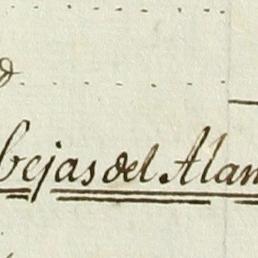 bejas del Alam